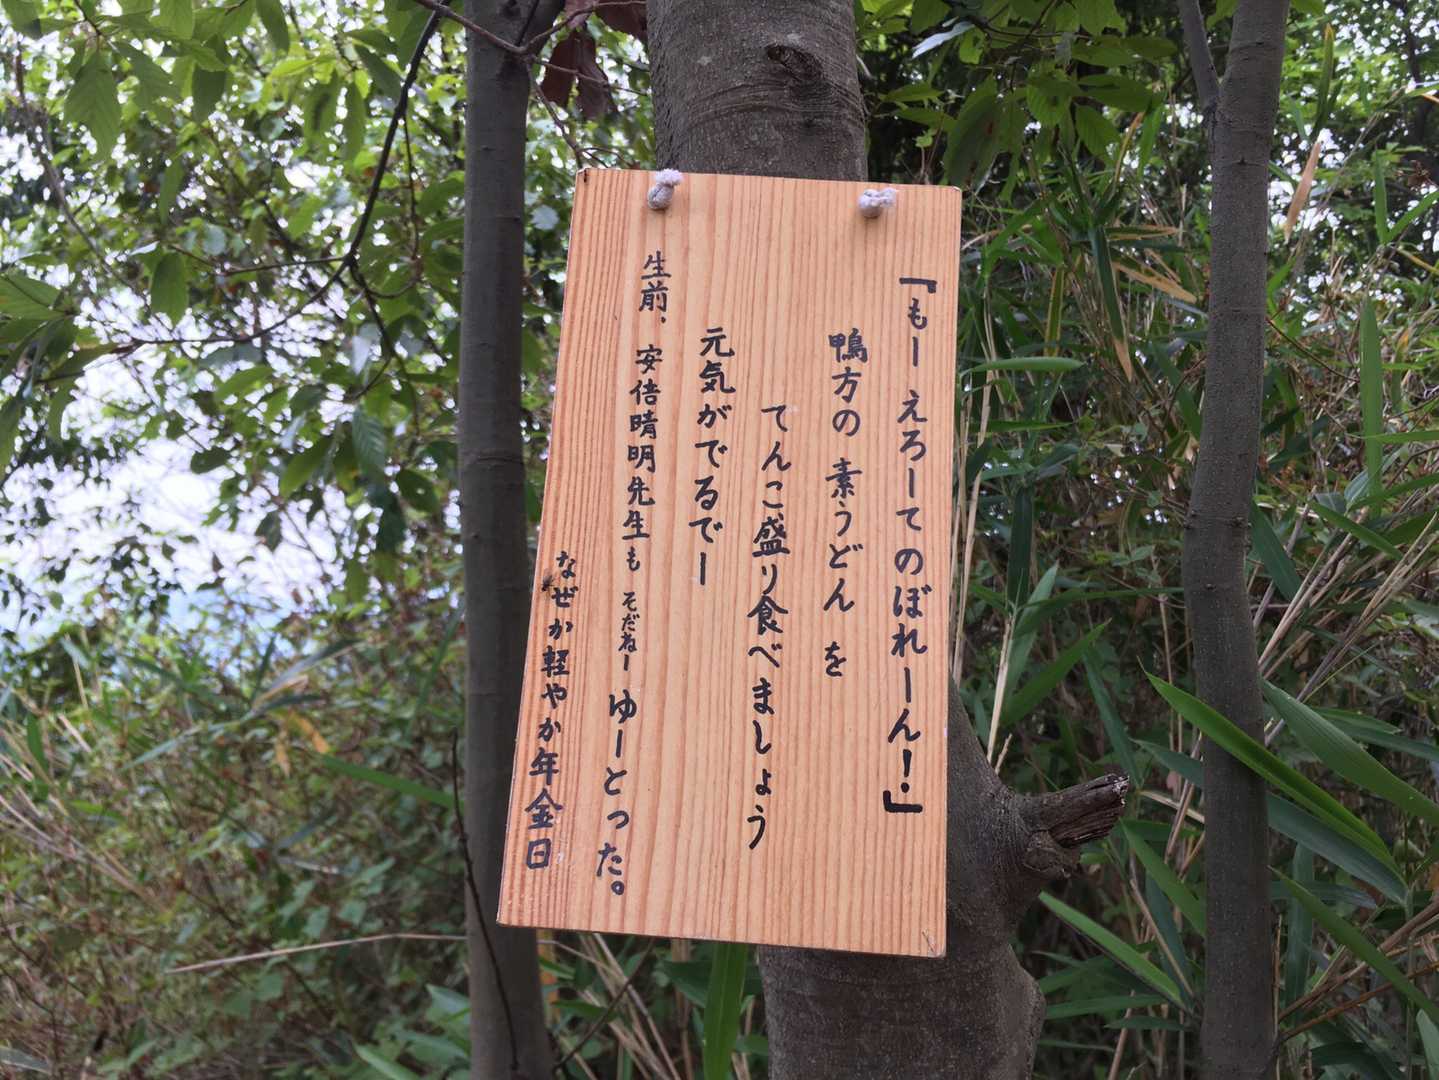 『もー えろーてのぼれーん!』
鴨方の 素うどん を
てんこ盛り食べましょう
元気がでるでー
生前、安倍晴明先生も そだねー ゆーとった。
なぜか軽やか年金日